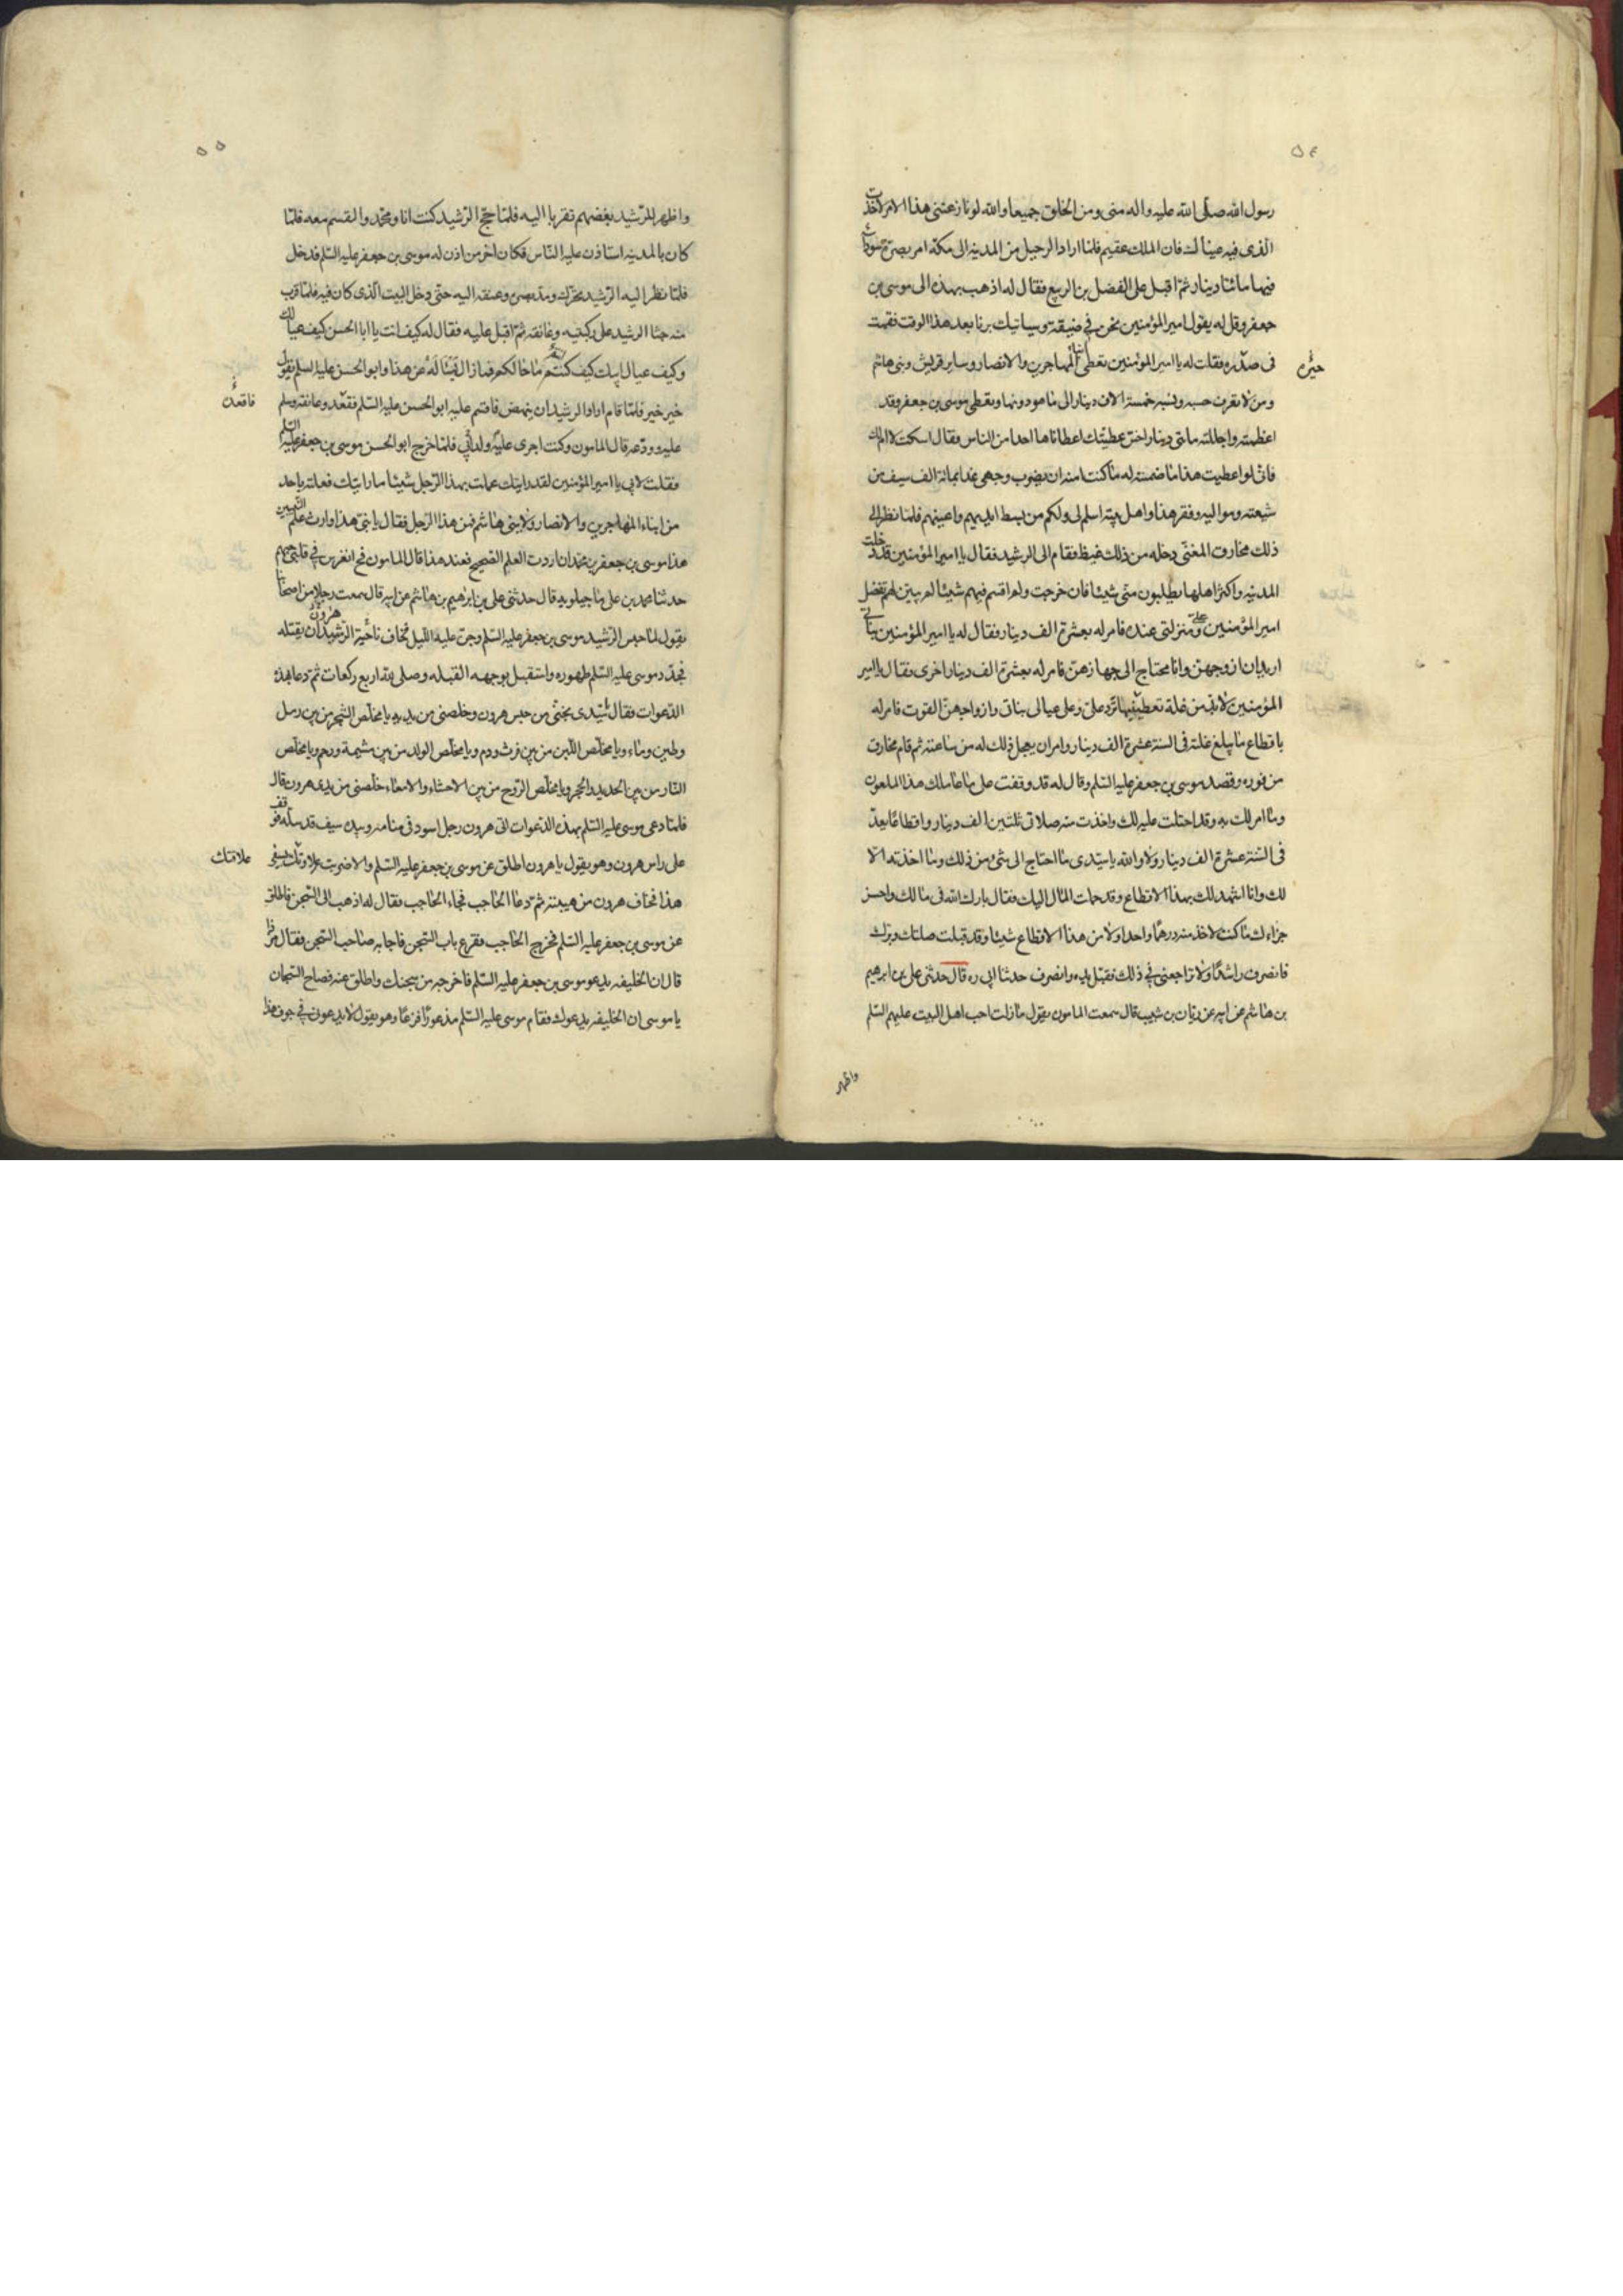 ٥٤
رسول الله صلى الله عليه واله منى ومن الخلق جميعا والله لو نازعتنى هذا الامر لاخذت
الذى فيه عيناك فان الملك عقيم فلما اراد الرحيل من المدينه الى مكة امر بصرة سوداء
فيها مائتا دينار ثم اقبل على الفضل بن الربيع فقال له اذهب بهذه الى موسى بن
جعفر وقل له يقول امير المؤمنين نحن فى ضيقة وسياتيك برنا بعد هذا الوقت فقمت
فى صدره فقلت له يا امير المؤمنين تعطى ابناء المهاجرين والانصار وساير قريش وبنى هاشم
ومن لا تعرف حسبه ونسبه خمسة الاف دينار الى ما هو دونها وتعطى موسى بن جعفر وقد
اعظمته واجللته مائتى دينار اخس عطيتك اعطاناها احدا من الناس فقال اسكت لا ام لك
فانى لو اعطيت هذا ما ضمنته له ما كنت امنه ان يضرب وجهى غدا بمائة الف سيف من
شيعته ومواليه وفقر هذا واهل بيته اسلم لى ولكم من بسط ايديهم واعينهم فلما نظر الى
ذلك مخارق المغنى دخله من ذلك غيظ فقام الى الرشيد فقال يا امير المؤمنين قد دخلت
المدينه واكثر اهلها يطلبون منى شيئا فان خرجت ولم اقسم فيهم شيئا لم يتبين لهم تفضل
امير المؤمنين على ومنزلتى عنده فامر له بعشرة الف دينار فقال له يا امير المؤمنين بناتى
اريد ان ازوجهن وانا محتاج الى جهازهن فامر له بعشرة الف دينار اخرى فقال يا امير
المؤمنين لابد من غلة تعطينيها ترد على وعلى عيالى بناتى وازواجهن القوت فامر له
باقطاع ما يبلغ غلته فى السنة عشرة الف دينار وامر ان يعجل ذلك له من ساعته ثم قام مخارق
من فوره وقصد موسى بن جعفر عليه السلم وقال له قد وقفت على ما عاملك هذا الملعون
وما امر لك به وقد احتلت عليه لك واخذت منه صلاتى ثلثين الف دينار واقطاعا يغل
فى السنة عشرة الف دينار ولا والله يا سيدى ما احتاج الى شئ من ذلك وما اخذته الا
لك وانا اشهد لك بهذا الاقطاع وقد حملت المال اليك فقال بارك الله فى مالك واحسن
جزاءك ما كنت لاخذ منه درهما واحدا ولا من هذا الاقطاع شيئا وقد قبلت صلتك وبرك
فانصرف راشدا ولا تراجعنى فى ذلك فقبل يده وانصرف حدثنا ابى ره قال حدثنى على بن ابرهيم
بن هاشم عن ابيه عن ريان بن شبيب قال سمعت المامون يقول ما زلت احب اهل البيت عليهم السلم
واظهر
٥٥
واظهر للرشيد بغضهم تقربا اليه فلما حج الرشيد كنت انا ومحمد والقسم معه فلما
كان بالمدينه استاذن عليه الناس فكان اخر من اذن له موسى بن جعفر عليه السلم فدخل
فلما نظر اليه الرشيد تحرك ومد بصره وعنقه اليه حتى دخل البيت الذى كان فيه فلما قرب
منه جثا الرشيد على ركبتيه وعانقه ثم اقبل عليه فقال له كيف انت يا ابا الحسن كيف عيالك
وكيف عيال ابيك كيف كنتم ما حالكم فما زال يسئله عن هذا وابو الحسن عليه السلم يقول
خير خير فلما قام اراد الرشيد ان ينهض فاقسم عليه ابو الحسن عليه السلم فقعد وعانقه وسلم
فاقعده
عليه وودعه قال المامون وكنت اجرى ولد ابى عليه فلما خرج ابو الحسن موسى بن جعفر عليه السلم
فقلت لابى يا امير المؤمنين لقد رايتك عملت بهذا الرجل شيئا ما رايتك فعلته باحد
من ابناء المهاجرين والانصار ولا بنى هاشم فمن هذا الرجل فقال يا بنى هذا وارث علم النبيين
هذا موسى بن جعفر بن محمد ان اردت العلم الصحيح فعند هذا قال المامون فح انغرس فى قلبى حبهم
حدثنا محمد بن على ماجيلويه قال حدثنى على بن ابراهيم بن هاشم عن ابيه قال سمعت رجلا من اصحابنا
يقول لما حبس الرشيد موسى بن جعفر عليه السلم وجن عليه الليل فخاف ناحية هرون الرشيد ان يقتله
فجدد موسى عليه السلم طهوره واستقبل بوجهه القبله وصلى لله اربع ركعات ثم دعا بهذه
الدعوات فقال سيدى نجنى من حبس هرون وخلصنى من يديه يا مخلص الشجر من بين رمل
وطين وماء ويا مخلص اللبن من بين فرث ودم ويا مخلص الولد من بين مشيمة ورحم ويا مخلص
النار من بين الحديد والحجر ويا مخلص الروح من بين الاحشاء والامعاء خلصنى من يدى هرون قال
فلما دعى موسى عليه السلم بهذه الدعوات اتى هرون رجل اسود فى منامه وبيده سيف قد سله فوقف
على راس هرون وهو يقول يا هرون اطلق عن موسى بن جعفر عليه السلم والا ضربت علاوتك بسيفى
علاقتك
هذا فخاف هرون من هيبته ثم دعا الحاجب فجاء الحاجب فقال له اذهب الى السجن فاطلق
عن موسى بن جعفر عليه السلم فخرج الحاجب فقرع باب السجن فاجابه صاحب السجن فقال من ذا
قال ان الخليفه يدعو موسى بن جعفر عليه السلم فاخرجه من سجنك واطلق عنه فصاح السجان
يا موسى ان الخليفه يدعوك فقام موسى عليه السلم مذعورا فزعا وهو يقول لا يدعونى فى جوف هذا